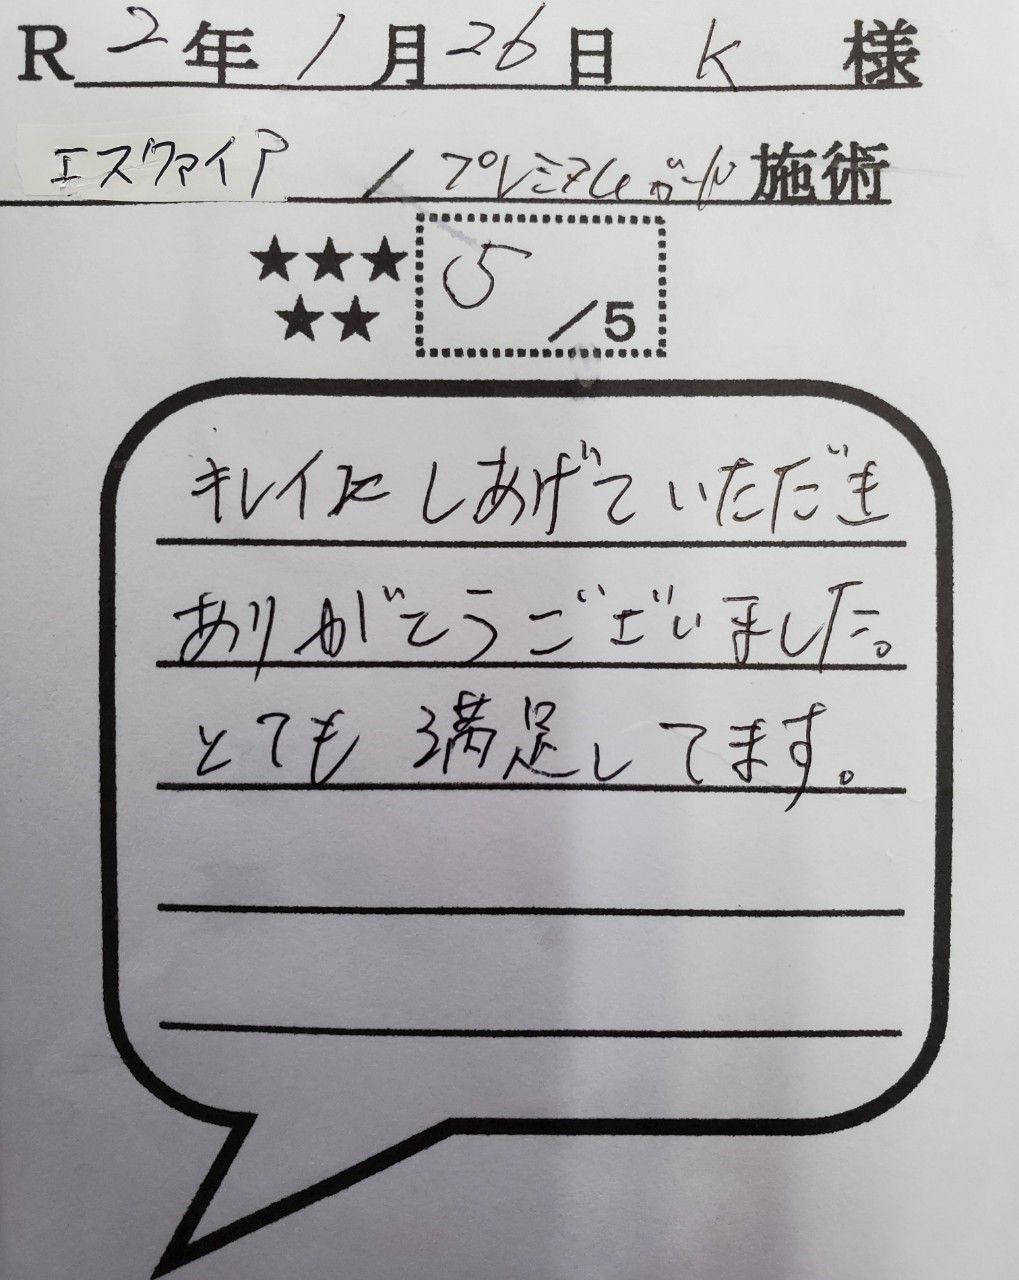 R 2年 1月 26日 K 様
エスクァイア / プレミアムガード 施術
★★★ 5
★★ /5
キレイにしあげていただき
ありがとうございました。
とても満足してます。